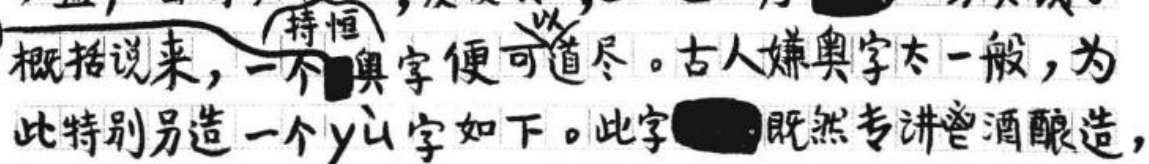 持恒
以
概括说来，一个奥字便可道尽。古人嫌奥字太一般，为
此特别另造一个yù字如下。此字既然专讲酒酿造，